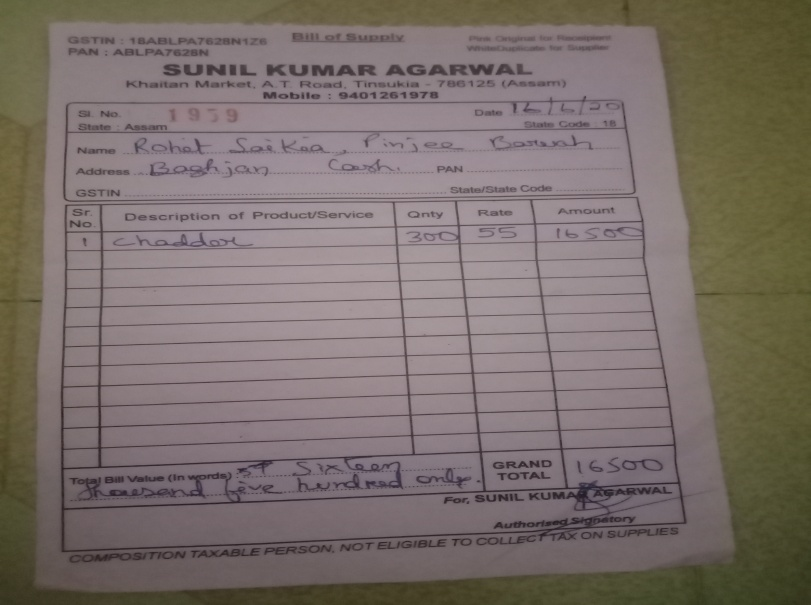 GSTIN : 18ABLPA7628N1Z6 Bill of Supply Pink Original for Receipient
PAN : ABLPA7628N White Duplicate for Supplier
SUNIL KUMAR AGARWAL
Khaitan Market, A.T. Road, Tinsukia - 786125 (Assam)
Mobile : 9401261978
Sl. No. 1959 Date 16/6/20
State : Assam State Code : 18
Name Rohit Saikia, Pinjee Baruah
Address Baghjan Cash. PAN
GSTIN State/State Code
Sr. No. Description of Product/Service Qnty Rate Amount
1 Chaddor 300 55 16500
Total Bill Value (In words) Sixteen
thousand five hundred only. GRAND TOTAL 16500
For, SUNIL KUMAR AGARWAL
Authorised Signatory
COMPOSITION TAXABLE PERSON, NOT ELIGIBLE TO COLLECT TAX ON SUPPLIES